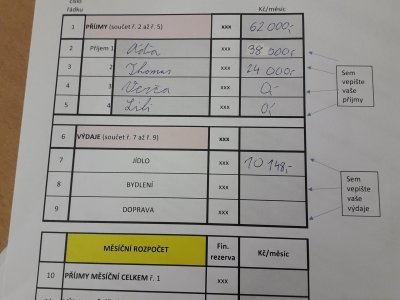 číslo
řádku Kč/měsíc
1 PŘÍJMY (součet ř. 2 až ř. 5) xxx 62 000,-
2 Příjem 1 Ada 38 000,-
3 2 Thomas xxx 24 000,-
4 3 xxx 0,-
5 4 Lili xxx 0,-
Sem
vepište
vaše
příjmy
6 VÝDAJE (součet ř. 7 až ř. 9) xxx
7 JÍDLO xxx 10 148,-
8 BYDLENÍ xxx
9 DOPRAVA xxx
Sem
vepište
vaše
výdaje
MĚSÍČNÍ ROZPOČET Fin. rezerva Kč/měsíc
10 PŘÍJMY MĚSÍČNÍ CELKEM ř. 1 xxx